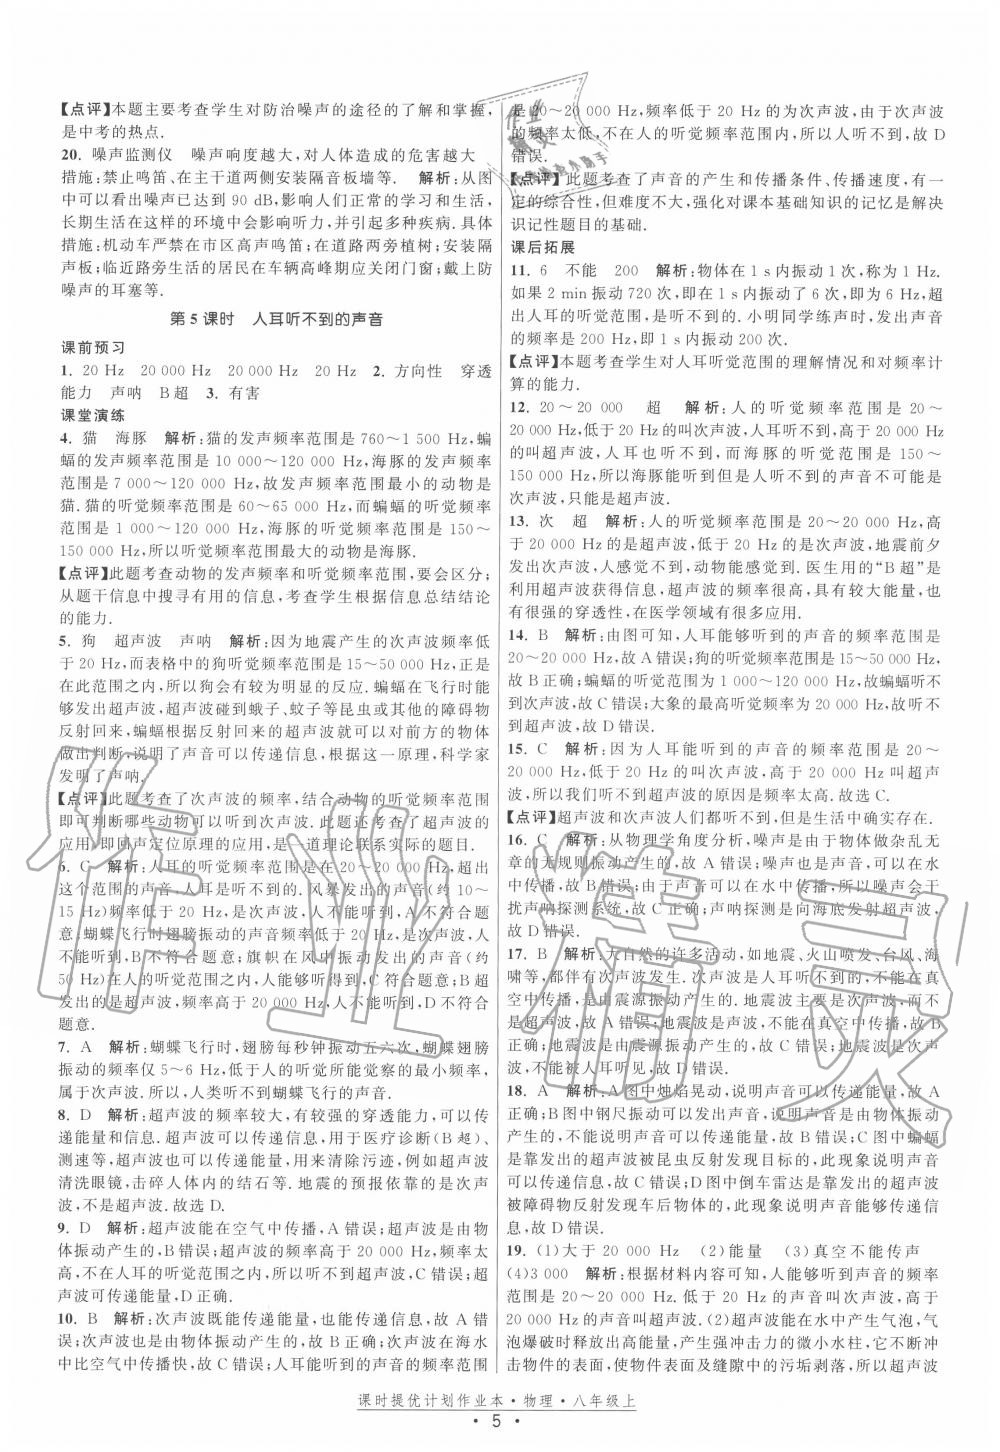 【点评】本题主要考查学生对防治噪声的途径的了解和掌握,
是中考的热点.
20. 噪声监测仪 噪声响度越大,对人体造成的危害越大
措施:禁止鸣笛、在主干道两侧安装隔音板墙等. 解析:从图
中可以看出噪声已达到 90 dB,影响人们正常的学习和生活,
长期生活在这样的环境中会影响听力,并引起多种疾病. 具体
措施:机动车严禁在市区高声鸣笛;在道路两旁植树;安装隔
声板;临近路旁生活的居民在车辆高峰期应关闭门窗;戴上防
噪声的耳塞等.
第 5 课时 人耳听不到的声音
课前预习
1. 20 Hz 20 000 Hz 20 000 Hz 20 Hz 2. 方向性 穿透
能力 声呐 B超 3. 有害
课堂演练
4. 猫 海豚 解析:猫的发声频率范围是 760~1 500 Hz,蝙
蝠的发声频率范围是 10 000~120 000 Hz,海豚的发声频率
范围是 7 000~120 000 Hz,故发声频率范围最小的动物是
猫. 猫的听觉频率范围是 60~65 000 Hz,而蝙蝠的听觉频率
范围是 1 000~120 000 Hz,海豚的听觉频率范围是 150~
150 000 Hz,所以听觉频率范围最大的动物是海豚.
【点评】此题考查动物的发声频率和听觉频率范围,要会区分;
从题干信息中搜寻有用的信息,考查学生根据信息总结结论
的能力.
5. 狗 超声波 声呐 解析:因为地震产生的次声波频率低
于 20 Hz,而表格中的狗听觉频率范围是 15~50 000 Hz,正是
在此范围之内,所以狗会有较为明显的反应. 蝙蝠在飞行时能
够发出超声波,超声波碰到蛾子、蚊子等昆虫或其他的障碍物
反射回来,蝙蝠根据反射回来的超声波就可以对前方的物体
做出判断,说明了声音可以传递信息,根据这一原理,科学家
发明了声呐.
【点评】此题考查了次声波的频率,结合动物的听觉频率范围
即可判断哪些动物可以听到次声波. 此题还考查了超声波
的应用,即回声定位原理的应用,是一道理论联系实际的题目.
6. C 解析:人耳的听觉频率范围是在 20~20 000 Hz,超出
这个范围的声音,人耳是听不到的. 风暴发出的声音(约 10~
15 Hz)频率低于 20 Hz,是次声波,人不能听到,A 不符合题
意;蝴蝶飞行时翅膀振动的声音频率低于 20 Hz,是次声波,人
不能听到,B 不符合题意;旗帜在风中振动发出的声音(约
50 Hz)在人的听觉范围之内,人能听得到,C 符合题意;B 超
发出的是超声波,频率高于 20 000 Hz,人不能听到,D 不符合
题意.
7. A 解析:蝴蝶飞行时,翅膀每秒钟振动五六次,蝴蝶翅膀
振动的频率仅 5~6 Hz,低于人耳所能觉察的最小频率,
属于次声波. 所以,人类听不到蝴蝶飞行的声音.
8. D 解析:超声波的频率较大,有较强的穿透能力,可以传
递能量和信息. 超声波可以传递信息,用于医疗诊断(B 超)、
测速等,超声波也可以传递能量,用来清除污迹,例如超声波
清洗眼镜,击碎人体内的结石等. 地震的预报依靠的是次声
波,不是超声波. 故选 D.
9. D 解析:超声波能在空气中传播,A 错误;超声波是由物
体振动产生的,B 错误;超声波的频率高于 20 000 Hz,频率太
高,不在人耳的听觉范围之内,所以人耳听不到,C 错误;超声
波可传递能量,D 正确.
10. B 解析:次声波既能传递能量,也能传递信息,故 A 错
误;次声波也是由物体振动产生的,故 B 正确;次声波在海水
中比空气中传播快,故 C 错误;人能听到的声音的频率范围
是 20~20 000 Hz,频率低于 20 Hz 的为次声波,由于次声波
的频率太低,不在人的听觉频率范围内,所以人听不到,故 D
错误.
【点评】此题考查了声音的产生和传播条件、传播速度,有一
定的综合性,但难度不大,强化对课本基础知识的记忆是解决
识记性题目的基础.
课后拓展
11. 6 不能 200 解析:物体在 1 s 内振动 1 次,称为 1 Hz.
如果 2 min 振动 720 次,即在 1 s 内振动了 6 次,即为 6 Hz,超
出人耳的听觉范围,是不能听到的. 小明同学练声时,发出声音
的频率是 200 Hz,即 1 s 内振动 200 次.
【点评】本题考查学生对人耳听觉范围的理解情况和对频率计
算的能力.
12. 20~20 000 超 解析:人的听觉频率范围是 20~
20 000 Hz,低于 20 Hz 的叫次声波,人耳听不到,高于 20 000 Hz
的叫超声波,人耳也听不到,而海豚的听觉频率范围是 150~
150 000 Hz,所以海豚能听到但是人听不到的声音不可能是
次声波,只能是超声波.
13. 次 超 解析:人的听觉频率范围是 20~20 000 Hz,高
于 20 000 Hz 的是超声波,低于 20 Hz 的是次声波,地震前夕
发出次声波,人感觉不到,动物能感觉到. 医生用的“B 超”是
利用超声波获得信息,超声波的频率高,具有较大能量,也
有很强的穿透性,在医学领域有很多应用.
14. B 解析:由图可知,人耳能够听到的声音的频率范围是
20~20 000 Hz,故 A 错误;狗的听觉频率范围是 15~50 000 Hz,
故 B 正确;蝙蝠的听觉频率范围为 1 000~120 000 Hz,故蝙蝠听不
到次声波,故 C 错误;大象的最高听觉频率为 20 000 Hz,故听
不到超声波,故 D 错误.
15. C 解析:因为人耳能听到的声音的频率范围是 20~
20 000 Hz,低于 20 Hz 的叫次声波,高于 20 000 Hz 叫超声
波,所以我们听不到超声波的原因是频率太高. 故选 C.
【点评】超声波和次声波人们都听不到,但是生活中确实存在.
16. C 解析:从物理学角度分析,噪声是由于物体做杂乱无
章的无规则振动产生的,故 A 错误;噪声也是声音,可以在水
中传播,故 B 错误;由于声音可以在水中传播,所以噪声会干
扰声呐探测系统,故 C 正确;声呐探测是向海底发射超声波,
故 D 错误.
17. B 解析:大自然的许多活动,如地震、火山喷发、台风、海
啸等,都伴有次声波发生. 次声波是人耳听不到的,不能在真
空中传播,是由震源振动产生的. 地震波主要是次声波,而不
是超声波,故 A 错误;地震波是声波,不能在真空中传播,故 B
正确;地震波是由震源振动产生的,故 C 错误;地震波是次声
波,不能被人耳听见,故 D 错误.
18. A 解析:A 图中烛焰晃动,说明声音可以传递能量,故 A
正确;B 图中钢尺振动可以发出声音,说明声音是由物体振动
产生的,不能说明声音可以传递能量,故 B 错误;C 图中蝙蝠
是靠发出的超声波被昆虫反射发现目标的,此现象说明声音
可以传递信息,故 C 错误;D 图中倒车雷达是靠发出的超声波
被障碍物反射发现车后物体的,此现象说明声音能够传递信
息,故 D 错误.
19. (1)大于 20 000 Hz (2)能量 (3)真空不能传声
(4)3 000 解析:根据材料内容可知,人能够听到声音的频率
范围是 20~20 000 Hz,低于 20 Hz 的声音叫次声波,高于
20 000 Hz 的声音叫超声波. (2)超声波能在水中产生气泡,气
泡爆破时释放出高能量,产生强冲击力的微小水柱,它不断冲
击物件的表面,使物件表面及缝隙中的污垢剥落,所以超声波
课时提优计划作业本·物理·八年级上
· 5 ·
作业精灵